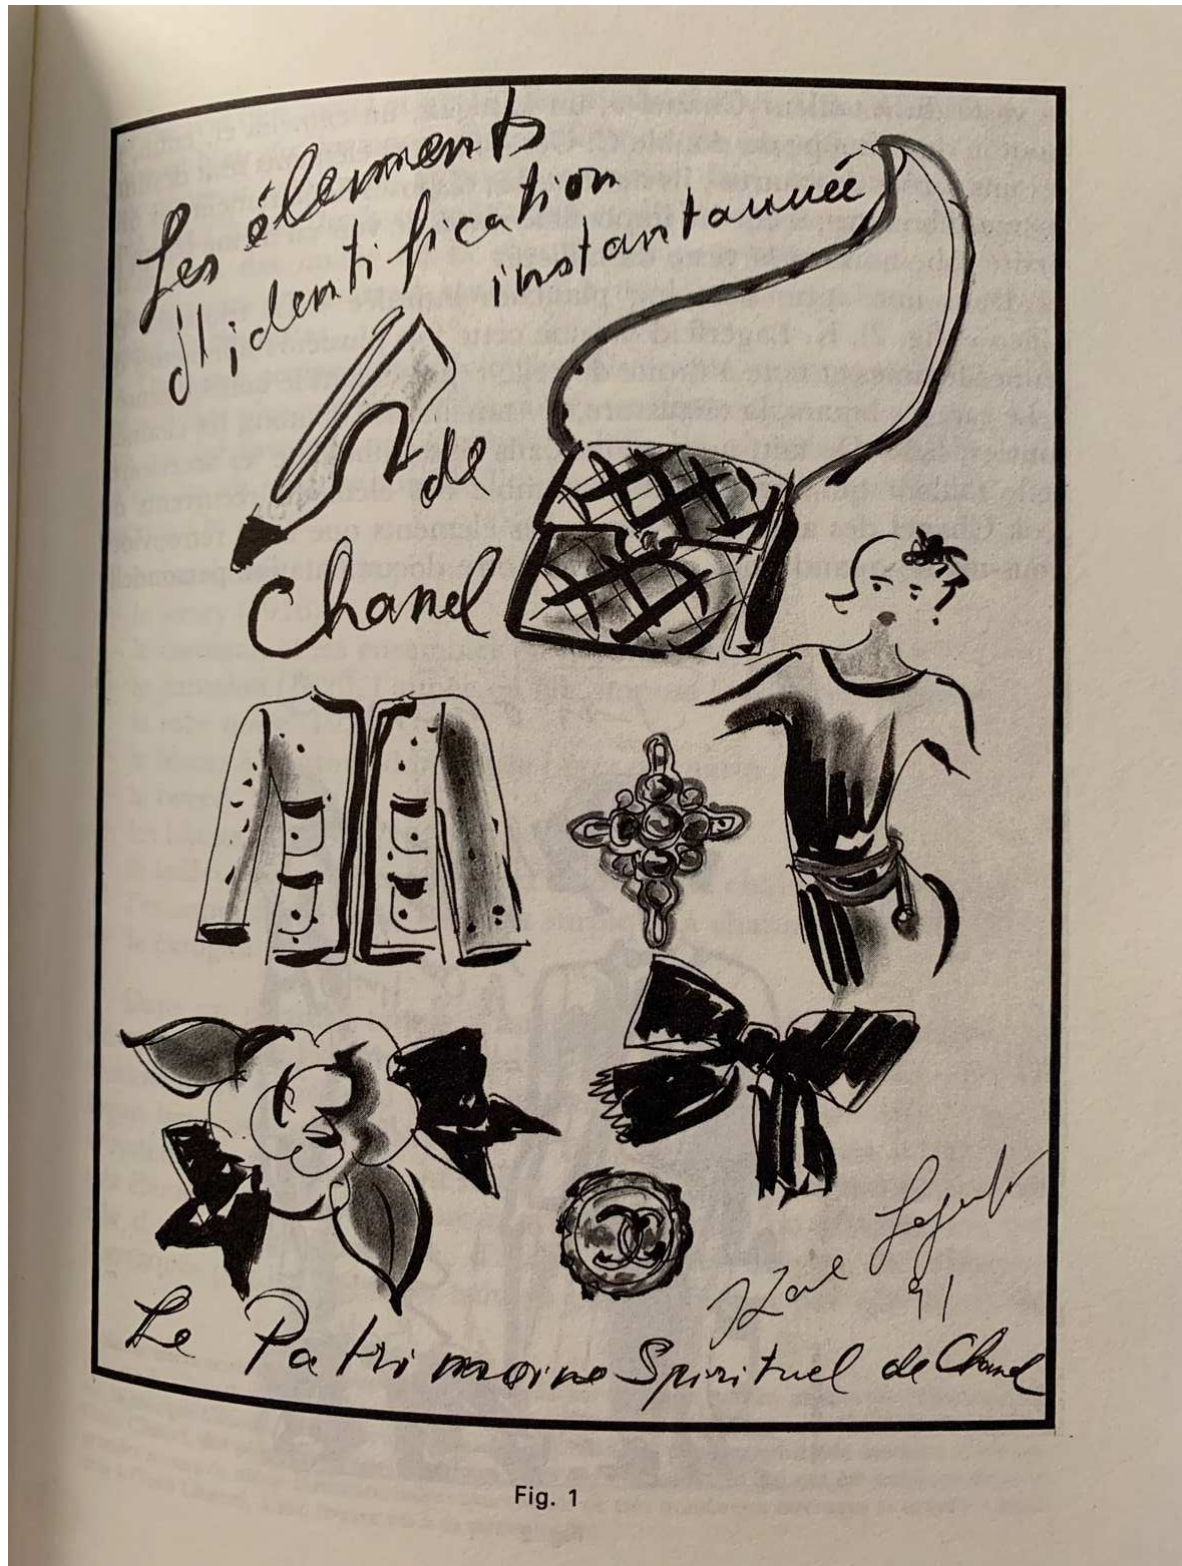 Les élements
d'identification
instantannée
de
Chanel
Karl Lagerfeld
91
Le Patrimoine Spirituel de Chanel
Fig. 1